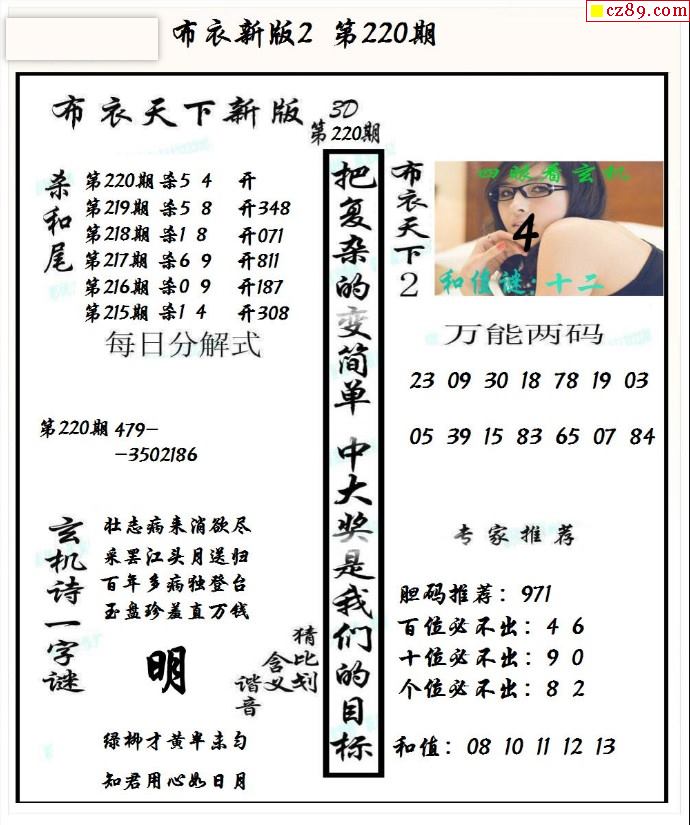 cz89.com
布衣新版2 第220期
布衣天下新版 3D
第220期
杀和尾
第220期 杀5 4 开
第219期 杀5 8 开348
第218期 杀1 8 开071
第217期 杀6 9 开811
第216期 杀0 9 开187
第215期 杀1 4 开308
每日分解式
第220期 479-
-3502186
玄机诗一字谜
壮志病来消欲尽
采罢江头月送归
百年多病独登台
玉盘珍羞直万钱
明
猜比划
含义
谐音
绿柳才黄半未匀
知君用心如日月
把复杂的变简单 中大奖是我们的目标
布衣天下2
四眼看玄机
4
和值谜:十二
万能两码
23 09 30 18 78 19 03
05 39 15 83 65 07 84
专家推荐
胆码推荐：971
百位必不出：4 6
十位必不出：9 0
个位必不出：8 2
和值：08 10 11 12 13